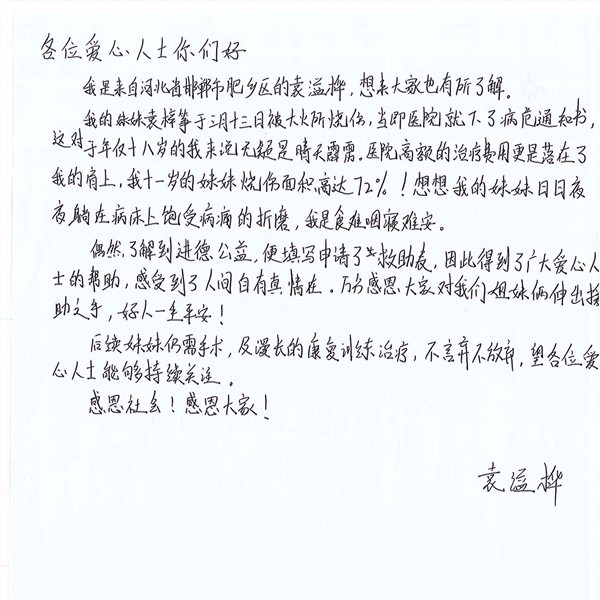 各位爱心人士你们好
我是来自河北省邯郸市肥乡区的袁溢桦，想来大家也有所了解。
我的妹妹袁梓筝于三月十三日被大火所烧伤，当即医院就下了病危通知书，
这对于年仅十八岁的我来说无疑是晴天霹雳。医院高额的治疗费用更是落在了
我的肩上，我十一岁的妹妹烧伤面积高达72%！想想我的妹妹日日夜
夜躺在病床上饱受病痛的折磨，我是食难咽寝难安。
偶然了解到进德公益，便填写申请了救助表，因此得到了广大爱心人
士的帮助，感受到了人间自有真情在。万分感恩大家对我们姐妹俩伸出援
助之手，好人一生平安！
后续妹妹仍需手术，及漫长的康复训练治疗，不言弃不放弃，望各位爱
心人士能够持续关注。
感恩社会！感恩大家！
袁溢桦